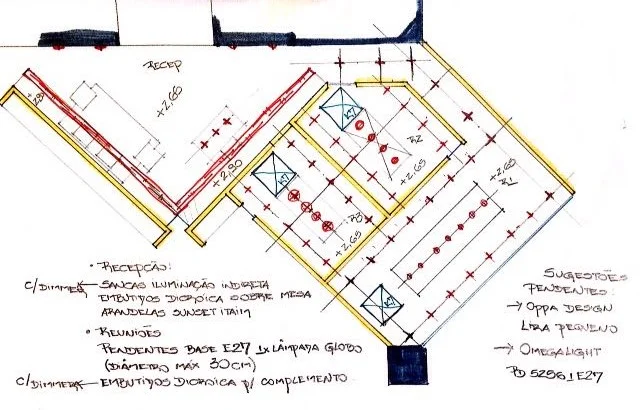 RECEP
+2,80
+2,60
+2,80
K7
R2
+2,65
K7
R3
+2,65
+2,65
R1
K7
• RECEPÇÃO:
C/DIMMER ← SANCAS ILUMINAÇÃO INDIRETA
EMBUTIDOS DICROICA SOBRE MESA
ARANDELAS SUNSET ITAIM
• REUNIÕES
PENDENTES BASE E27 1x LÂMPADA GLOBO
(DIÂMETRO MÁX 30CM)
C/DIMMER ← EMBUTIDOS DICROICA P/ COMPLEMENTO
SUGESTÕES
PENDENTES:
→ OPPA DESIGN
LIRA PEQUENO
→ OMEGALIGHT
PD 5256 1 E27